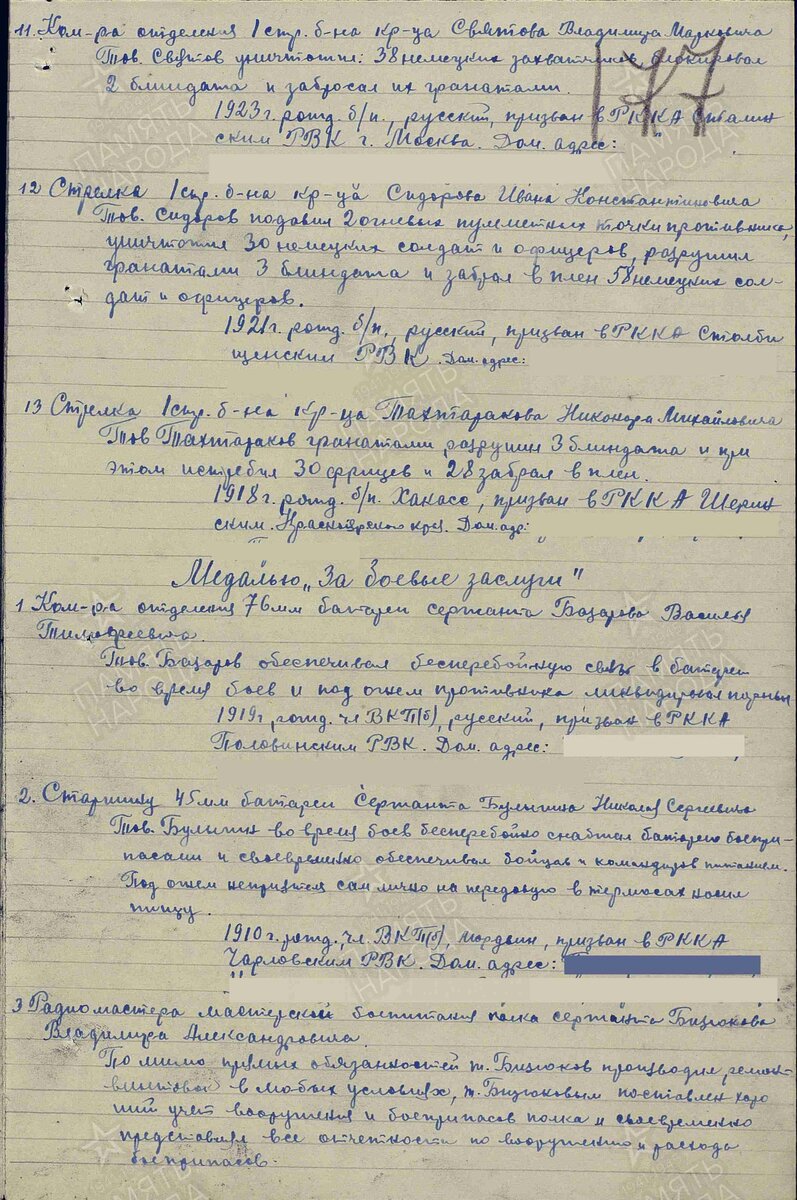 11 Ком-ра отделения 1 стр. б-на кр-ца Святова Владимира Марковича
Тов. Святов уничтожил: 38 немецких захватчиков, блокировал
2 блиндажа и забросал их гранатами.
177
1923 г. рожд. б/п., русский, призван в РККА Сталин
ским РВК г. Москва. Дом. адрес:
12 Стрелка 1 стр. б-на кр-ца Сидорова Ивана Константиновича
Тов. Сидоров подавил 2 огневых пулеметных точки противника,
уничтожил 30 немецких солдат и офицеров, разрушил
гранатами 3 блиндажа и забрал в плен 58 немецких сол-
дат и офицеров.
1921 г. рожд. б/п., русский, призван в РККА Столби
щенским РВК. Дом. адрес:
13 Стрелка 1 стр. б-на кр-ца Тахтаракова Никонора Михайловича
Тов Тахтараков гранатами разрушил 3 блиндажа и при
этом истребил 30 фрицев и 28 забрал в плен.
1918 г. рожд. б/п. Хакасс, призван в РККА Ширин
ским Красноярского края. Дом. адр:
Медалью „За боевые заслуги"
1 Ком-ра отделения 76 мм батареи сержанта Базарова Василия
Тимофеевича.
Тов. Базаров обеспечивал бесперебойную связь в батарее
во время боев и под огнем противника ликвидировал порывы
1919 г. рожд. чл ВКП(б), русский, призван в РККА
Половинским РВК. Дом. адрес:
2. Старшину 45 мм батареи сержанта Булыгина Николая Сергеевича
Тов. Булыгин во время боев бесперебойно снабжал батарею боепри-
пасами и своевременно обеспечивал бойцов и командиров питанием.
Под огнем неприятеля сам лично на передовую в термосах носил
пищу.
1910 г. рожд., чл. ВКП(б), мордвин, призван в РККА
Чарловским РВК. Дом. адрес:
3 Радиомастера мастерской боепитания полка сержанта Бизюкова
Владимира Александровича.
Помимо прямых обязанностей т. Бизюков производил ремонт
винтовок в любых условиях, т. Бизюковым поставлен хоро
ший учет вооружения и боеприпасов полка и своевременно
представлял все отчетности по вооружению и расходу
боеприпасов.
ПАМЯТЬ
НАРОДА